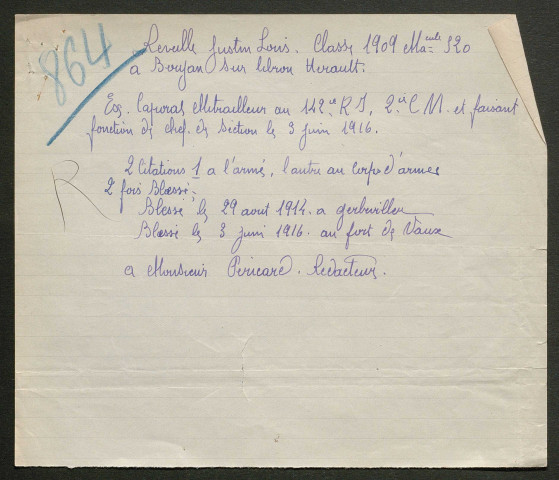 864
Reveille Justin Louis. Classe 1909 Macule 320
a Boujan sur libron Herault.
Ex. Caporal Mitrailleur au 142e R I, 2e C M. et faisant
fonction de chef de Section le 3 juin 1916.
R
2 Citations 1 a l'armé, l'autre au corps d'armes
2 fois Blessé:
Blessé le 29 aout 1914. a gerbeviller
Blessé le 3 juin 1916. au fort de Vaux
a Monsieur Péricard. Redacteur.